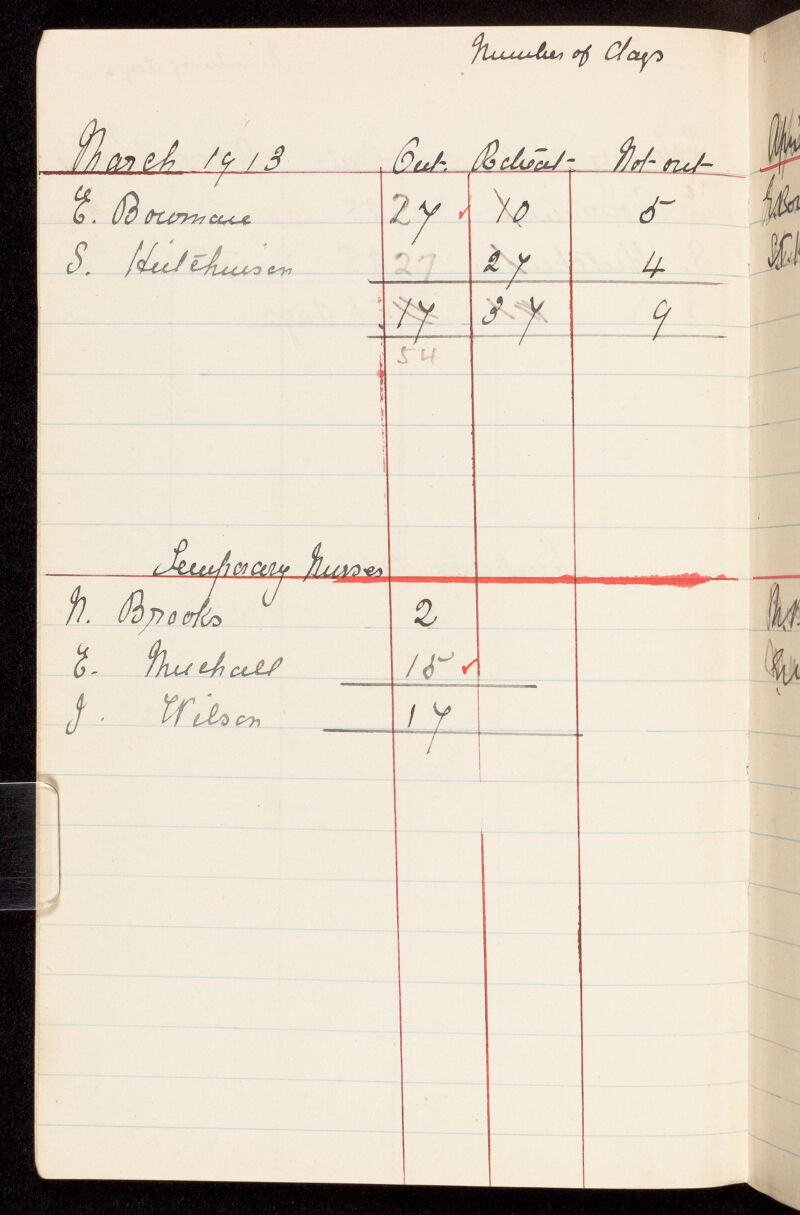 Number of days
March 1913 Out. Retreat Not out
E. Bowman 27 ✓ 10 5
S. Hutchinson 27 27 4
17 37 9
54
Temporary Nurses
N. Brooks 2
E. Muchall 15 ✓
J. Wilson 17